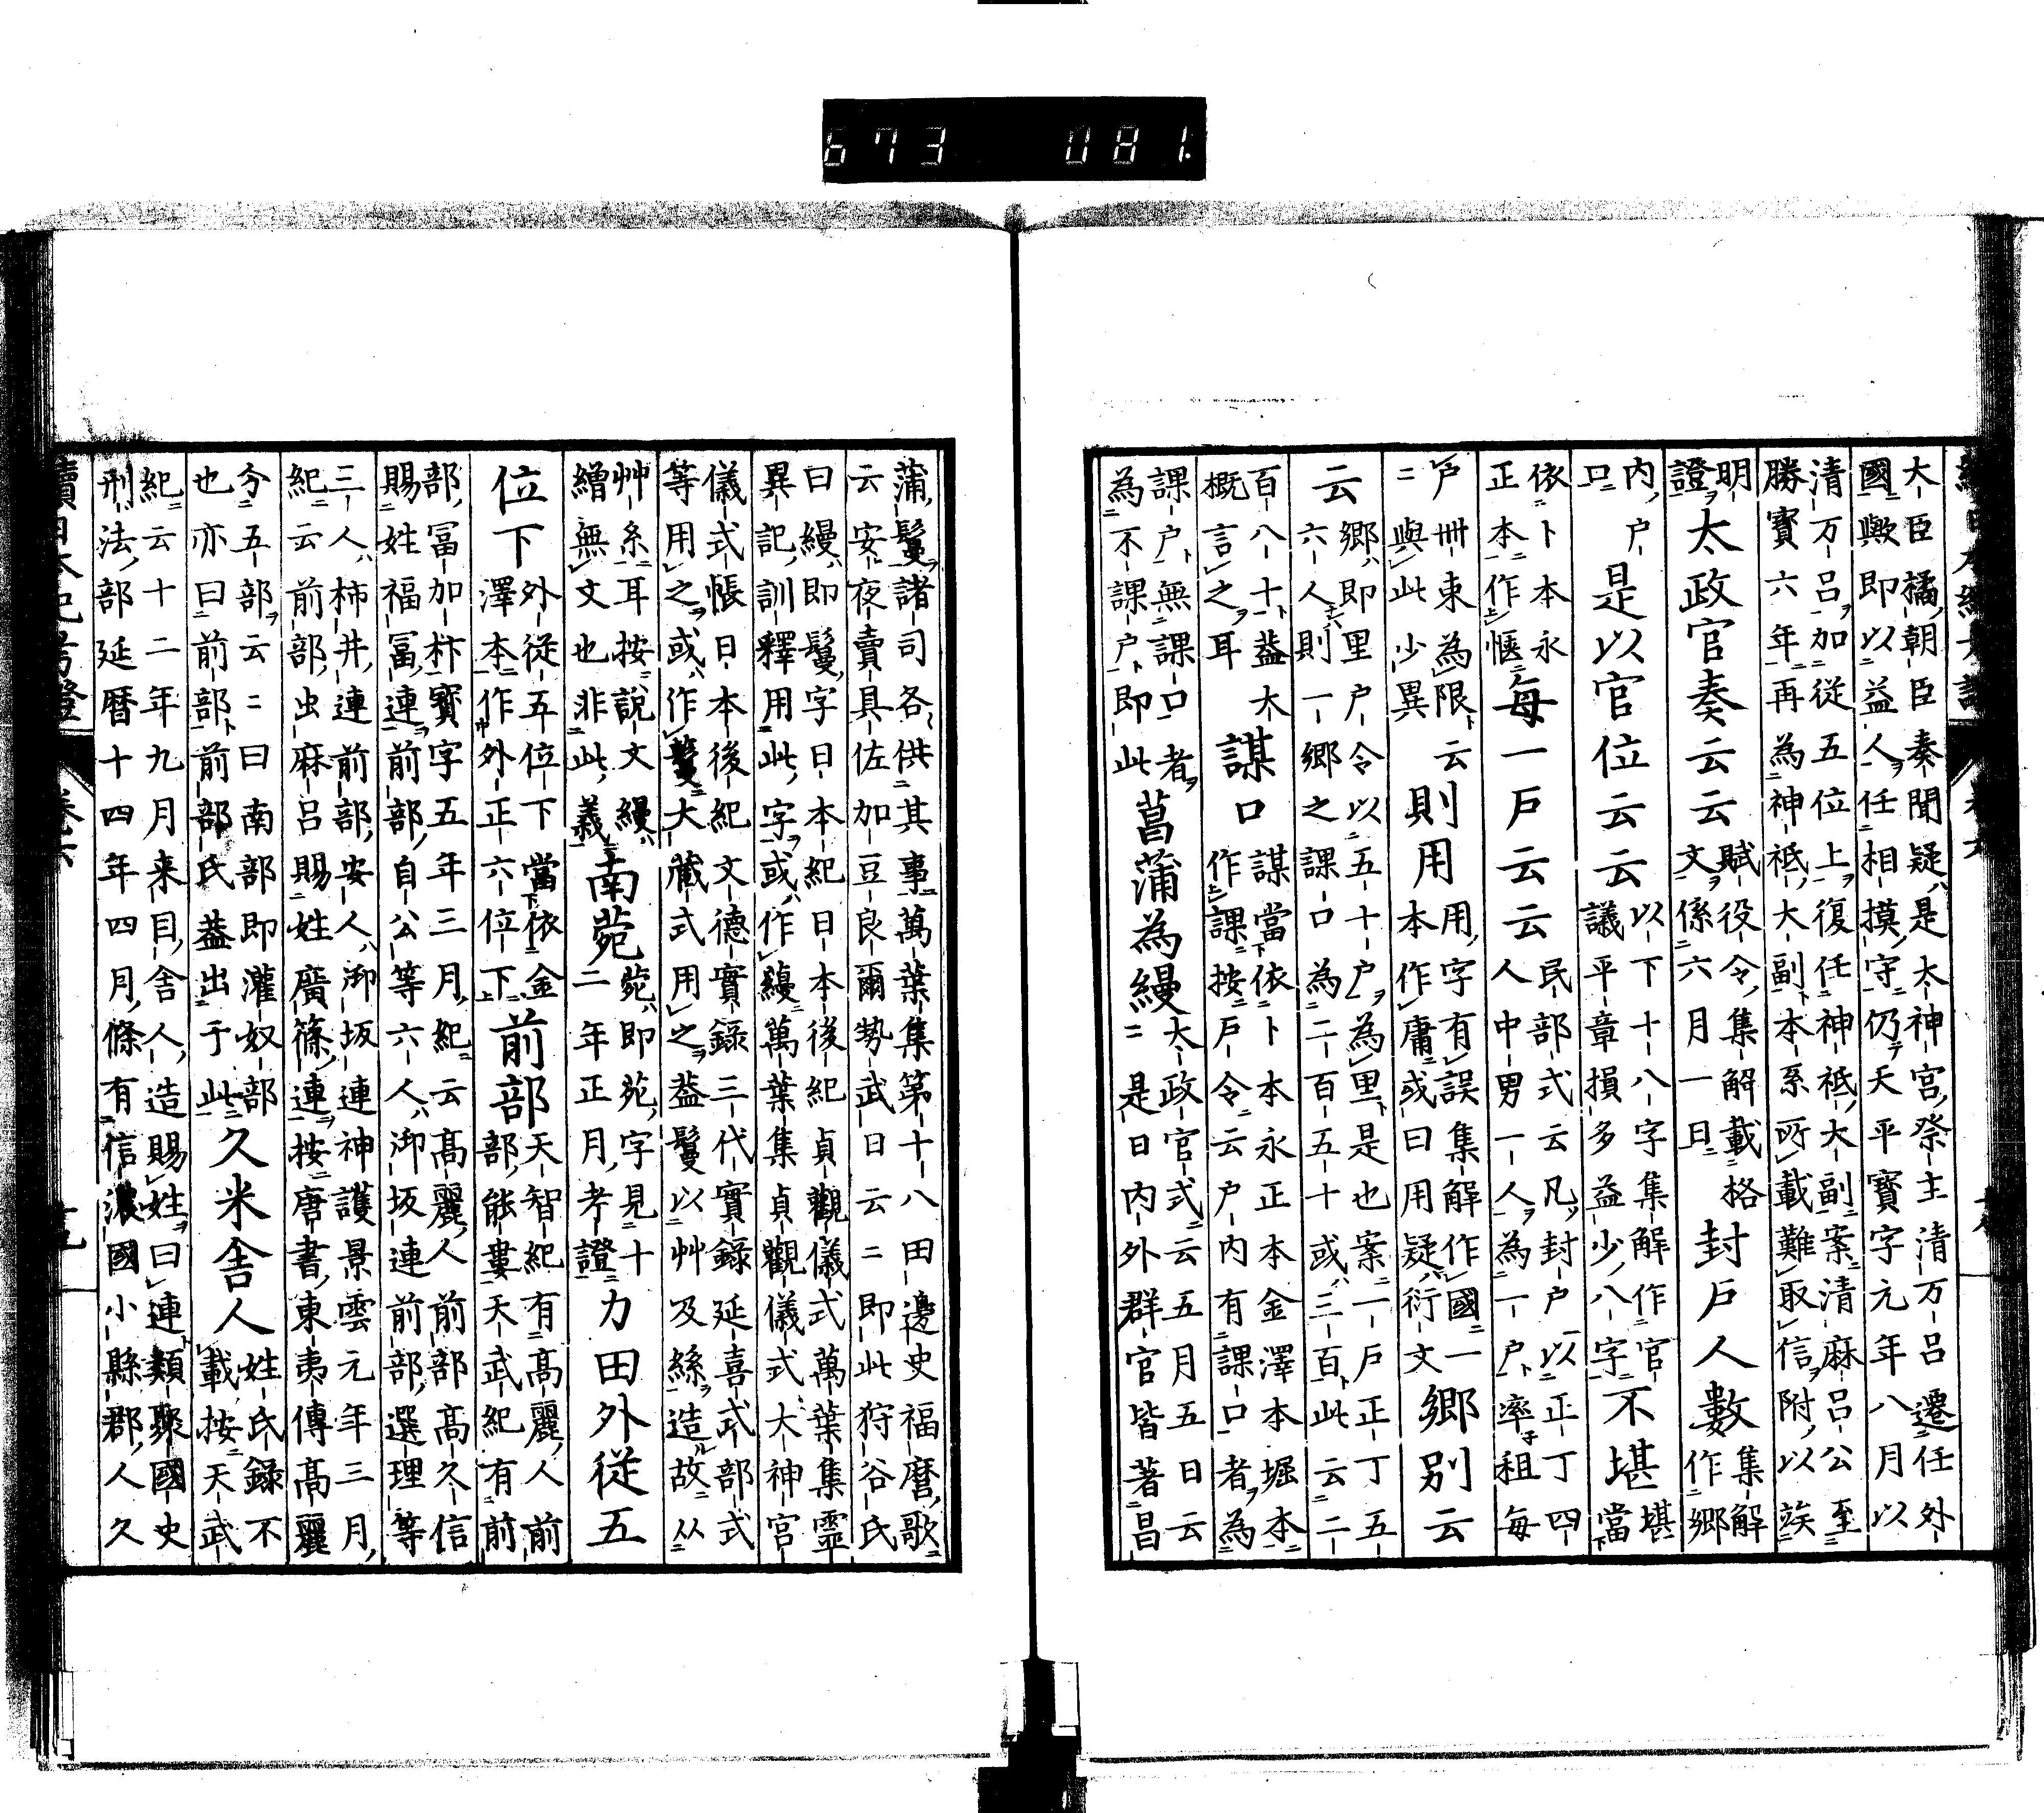 673 081
大臣橘朝臣奏聞疑是太神宮祭主清万呂遷任外
國歟即以益人任相摸守仍天平寶字元年八月以
清万呂加從五位上復任神祇大副案清麻呂公至
勝寶六年再為神祇大副本系所載難取信附以竢
明
證
太政官奏云云
賦役令集解載格
文係六月一日
封戸人數
集解
作郷
内戸
口
是以官位云云
以下十八字集解作官
議平章損多益少八字
不堪
堪
當
依卜本永
正本作愜
每一戸云云
民部式云凡封戸以正丁四
人中男一人為一戸率租每
戸卌束為限云
二與此少異
則用
用字有誤集解作國一
本作庸或曰用疑衍文
郷別云
云
郷即里戸令以五十戸為里是也案一戸正丁五
六人則一郷之課口為二百五十或三百此云二
百八十蓋大
概言之耳
謀口
謀當依卜本永正本金澤本堀本
作課按戸令云戸内有課口者為
課戸無課口者
為不課戸即此
菖蒲為縵
太政官式云五月五日云
二是日内外群官皆著昌
蒲鬘諸司各供其事萬葉集第十八田邊史福麿歌
云安夜賣具佐加豆良爾勢武日云二即此狩谷氏
曰縵即鬘字日本紀日本後紀貞觀儀式萬葉集靈
異記訓釋用此字或作蘰萬葉集貞觀儀式大神宮
儀式帳日本後紀文德實錄三代實錄延喜式部式
等用之或作鬘大藏式用之蓋鬘以艸及絲造故从
艸糸耳按說文縵
繒無文也非此義
南菀
菀即苑字見十
二年正月考證
力田外從五
位下
外從五位下當依金
澤本作外正六位下
前部
天智紀有高麗人前
部能婁天武紀有前
部冨加抃寶字五年三月紀云高麗人前部高久信
賜姓福冨連前部自公等六人御坂連前部選理等
三人柿井連前部安人御坂連神護景雲元年三月
紀云前部虫麻呂賜姓廣篠連按唐書東夷傳高麗
分五部云二曰南部即灌奴部
也亦曰前部前部氏蓋出于此
久米舍人
姓氏録不
載按天武
紀云十二年九月来目舍人造賜姓曰連類聚國史
刑法部延暦十四年四月條有信濃國小縣郡人久
續日本紀考證
卷六